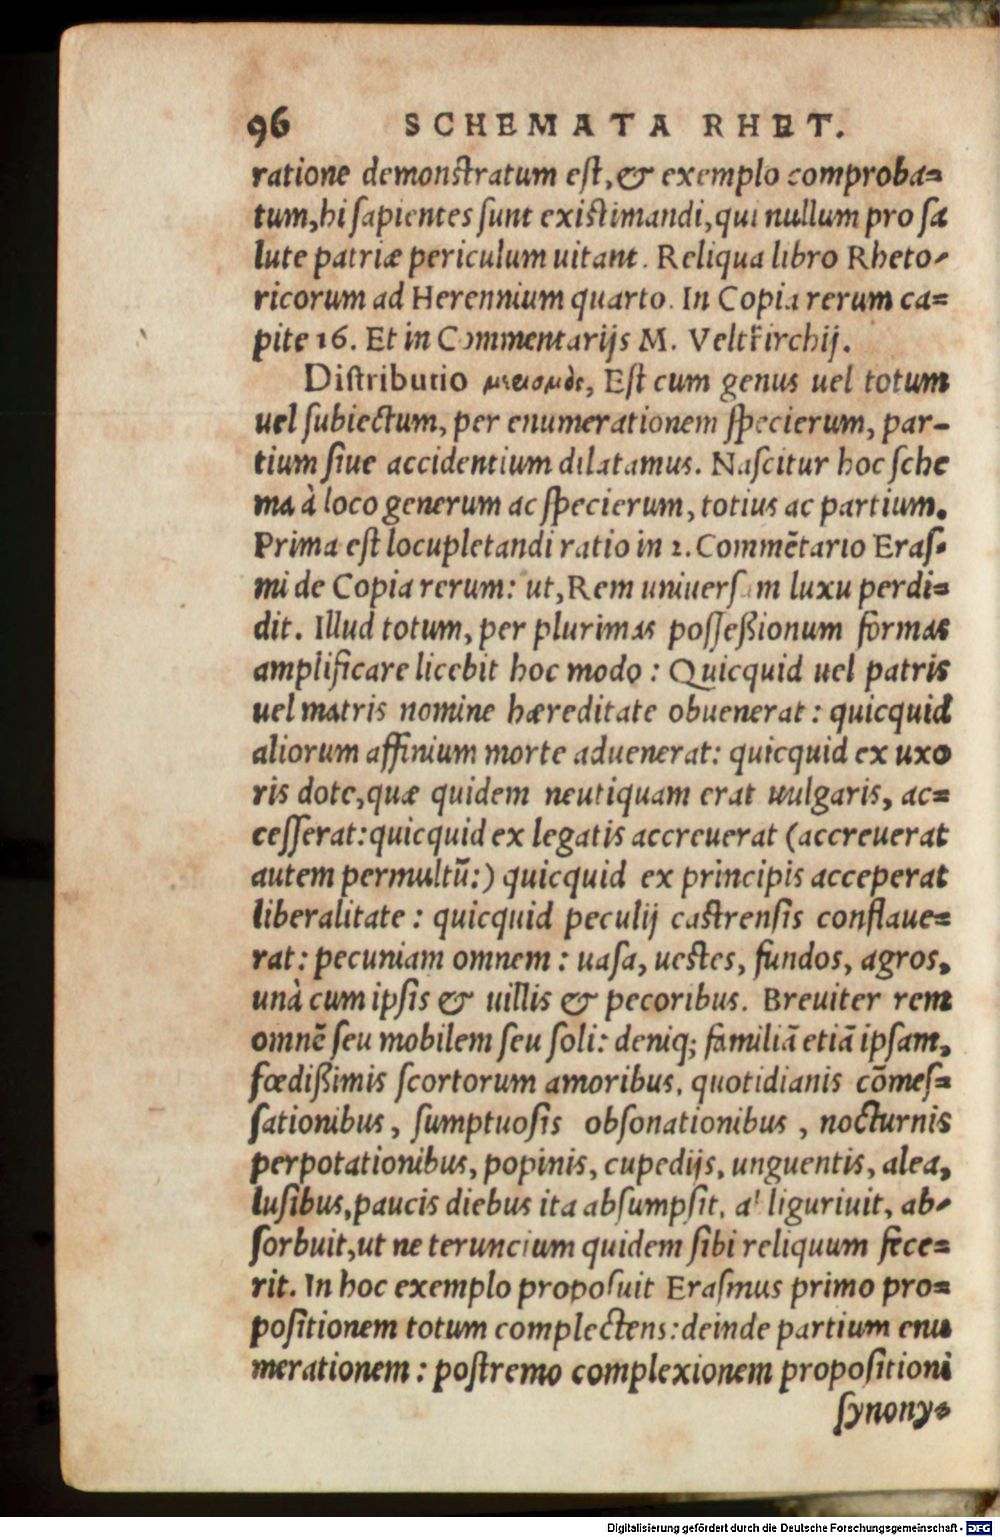 96 SCHEMATA RHET.
ratione demonstratum est, & exemplo comproba=
tum, hi sapientes sunt existimandi, qui nullum pro sa
lute patriæ periculum uitant. Reliqua libro Rheto-
ricorum ad Herennium quarto. In Copia rerum ca=
pite 16. Et in Commentarijs M. Veltkirchij.
Distributio Est cum genus uel totum
uel subiectum, per enumerationem specierum, par-
tium siue accidentium dilatamus. Nascitur hoc sche
ma à loco generum ac specierum, totius ac partium.
Prima est locupletandi ratio in 2. Commẽtario Eras-
mi de Copia rerum: ut, Rem uniuersam luxu perdi=
dit. Illud totum, per plurimas posseßionum formas
amplificare licebit hoc modo: Quicquid uel patris
uel matris nomine hæreditate obuenerat: quicquid
aliorum affinium morte aduenerat: quicquid ex uxo
ris dote, quæ quidem neutiquam erat uulgaris, ac=
cesserat: quicquid ex legatis accreuerat (accreuerat
autem permultũ:) quicquid ex principis acceperat
liberalitate: quicquid peculij castrensis conflaue=
rat: pecuniam omnem: uasa, uestes, fundos, agros,
unà cum ipsis & uillis & pecoribus. Breuiter rem
omnẽ seu mobilem seu soli: deniq; familiã etiã ipsam,
fœdißimis scortorum amoribus, quotidianis cõmes=
sationibus, sumptuosis obsonationibus, nocturnis
perpotationibus, popinis, cupedijs, unguentis, alea,
lusibus, paucis diebus ita absumpsit, liguriuit, ab-
sorbuit, ut ne teruncium quidem sibi reliquum fece=
rit. In hoc exemplo proposuit Erasmus primo pro=
positionem totum complectens: deinde partium enu
merationem: postremo complexionem propositioni
synony=
Digitalisierung gefördert durch die Deutsche Forschungsgemeinschaft - DFG